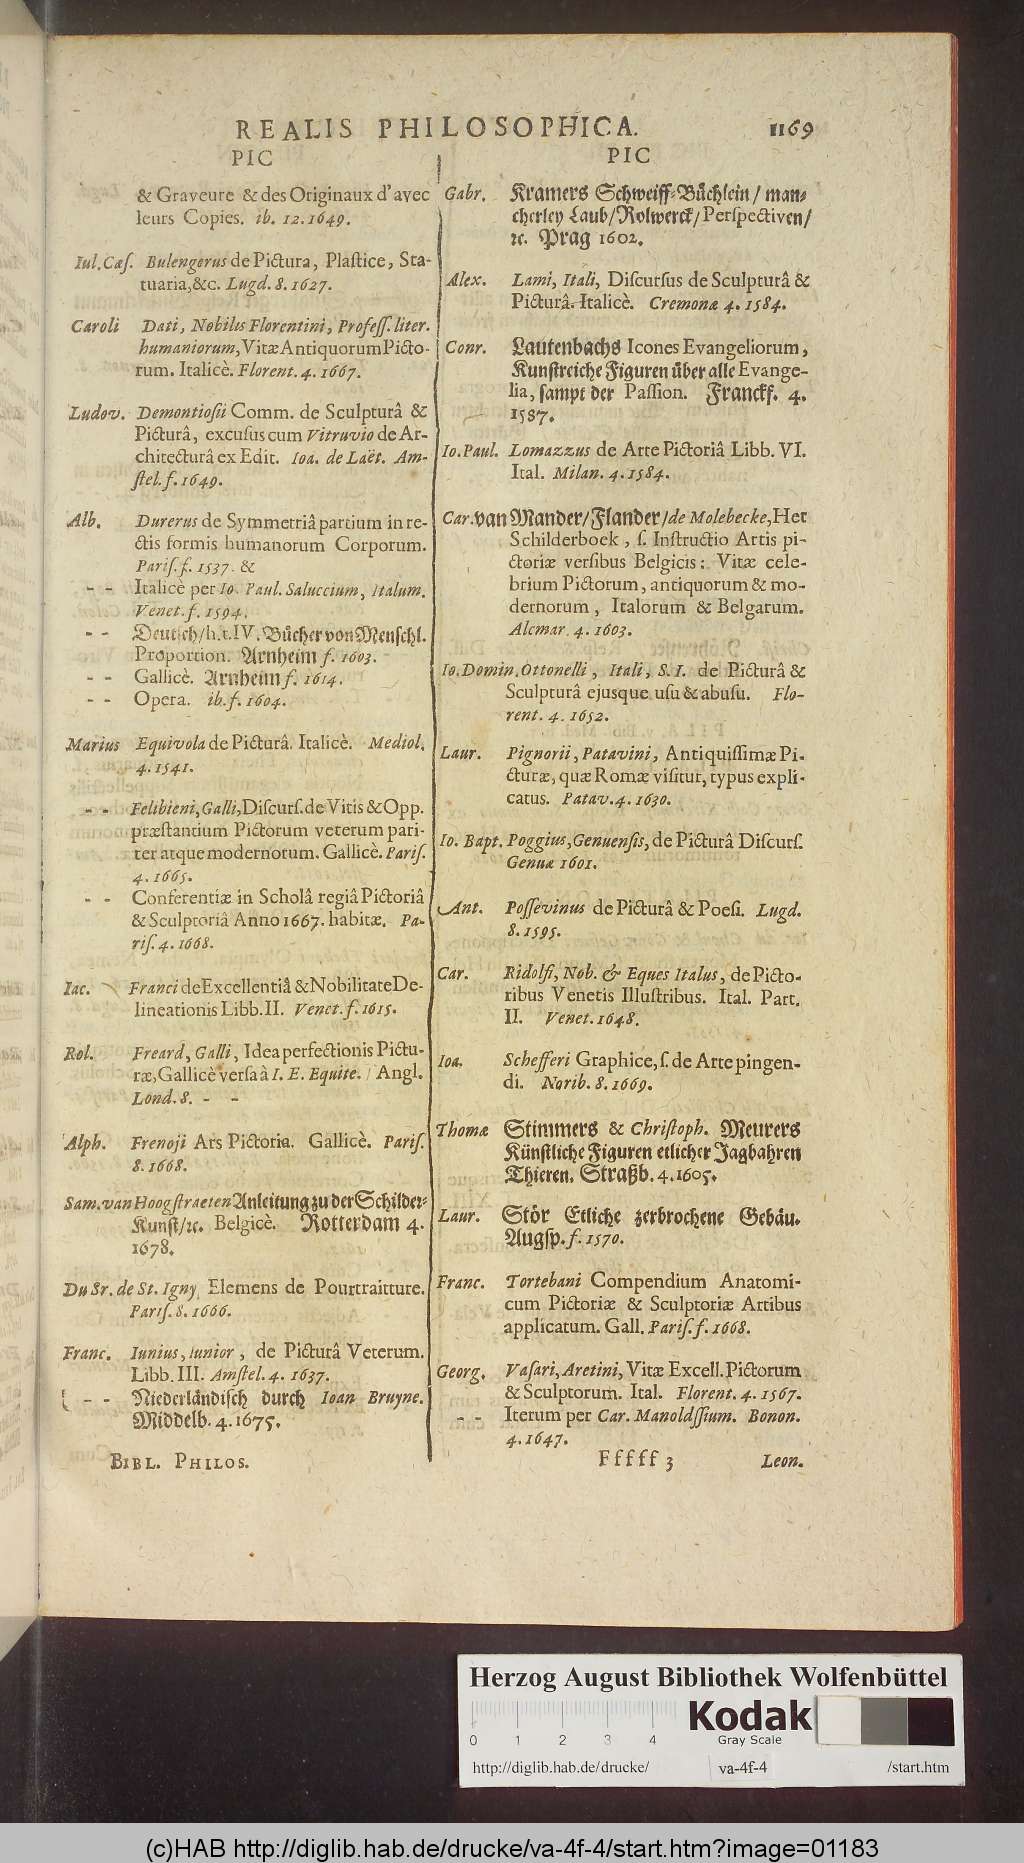 REALIS PHILOSOPHICA. 1169
PIC
& Graveure & des Originaux d'avec
leurs Copies. ib. 12. 1649.
Iul. Cæſ. Bulengerus de Pictura, Plaſtice, Sta-
tuaria, &c. Lugd. 8. 1627.
Caroli Dati, Nobilis Florentini, Profeſſ. liter.
humaniorum, Vitæ Antiquorum Picto-
rum. Italicè. Florent. 4. 1667.
Ludov. Demontioſii Comm. de Sculpturâ &
Picturâ, excuſus cum Vitruvio de Ar-
chitecturâ ex Edit. Ioa. de Laët. Am-
ſtel. f. 1649.
Alb. Durerus de Symmetriâ partium in re-
ctis formis humanorum Corporum.
Pariſ. f. 1537. &
- - Italicè per Io. Paul. Saluccium, Italum.
Venet. f. 1594.
- - Deutſch/h.t. IV. Bücher von Menſchl.
Proportion. Arnheim f. 1603.
- - Gallicè. Arnheim f. 1614.
- - Opera. ib. f. 1604.
Marius Equivola de Picturâ. Italicè. Mediol.
4. 1541.
- - Felibieni, Galli, Diſcurſ. de Vitis & Opp.
præſtantium Pictorum veterum pari-
ter atque modernorum. Gallicè. Pariſ.
4. 1665.
- - Conferentiæ in Scholâ regiâ Pictoriâ
& Sculptoriâ Anno 1667. habitæ. Pa-
riſ. 4. 1668.
Iac. Franci de Excellentiâ & Nobilitate De-
lineationis Libb. II. Venet. f. 1615.
Rol. Freard, Galli, Idea perfectionis Pictu-
ræ, Gallicè verſa à I. E. Equite. Angl.
Lond. 8. - -
Alph. Frenoji Ars Pictoria. Gallicè. Pariſ.
8. 1668.
Sam. van Hoogſtraeten Anleitung zu der Schilder-
Kunſt/ꝛc. Belgicè. Rotterdam 4.
1678.
Du Sr. de St. Igny Elemens de Pourtraitture.
Pariſ. 8. 1666.
Franc. Iunius, Iunior, de Picturâ Veterum.
Libb. III. Amſtel. 4. 1637.
- - Niederländiſch durch Ioan Bruyne.
Middelb. 4. 1675.
BIBL. PHILOS.
PIC
Gabr. Kramers Schweiff-Büchlein/ man-
cherley Laub/Rolwerck/Perſpectiven/
ꝛc. Prag 1602.
Alex. Lami, Itali, Diſcurſus de Sculpturâ &
Picturâ. Italicè. Cremonæ 4. 1584.
Conr. Lautenbachs Icones Evangeliorum,
Kunſtreiche Figuren über alle Evange-
lia, ſampt der Paſſion. Franckf. 4.
1587.
Io. Paul. Lomazzus de Arte Pictoriâ Libb. VI.
Ital. Milan. 4. 1584.
Car. van Mander/Flander/de Molebecke, Het
Schilderboek, ſ. Inſtructio Artis pi-
ctoriæ verſibus Belgicis: Vitæ cele-
brium Pictorum, antiquorum & mo-
dernorum, Italorum & Belgarum.
Alcmar. 4. 1603.
Io. Domin. Ottonelli, Itali, S. I. de Picturâ &
Sculpturâ ejusque uſu & abuſu. Flo-
rent. 4. 1652.
Laur. Pignorii, Patavini, Antiquiſſimæ Pi-
cturæ, quæ Romæ viſitur, typus expli-
catus. Patav. 4. 1630.
Io. Bapt. Poggius, Genuenſis, de Picturâ Diſcurſ.
Genuæ 1601.
Ant. Poſſevinus de Picturâ & Poeſi. Lugd.
8. 1595.
Car. Ridolfi, Nob. & Eques Italus, de Picto-
ribus Venetis Illuſtribus. Ital. Part.
II. Venet. 1648.
Ioa. Schefferi Graphice, ſ. de Arte pingen-
di. Norib. 8. 1669.
Thomæ Stimmers & Chriſtoph. Meurers
Künſtliche Figuren etlicher Jagbahren
Thieren. Straßb. 4. 1605.
Laur. Stör Etliche zerbrochene Gebäu.
Augſp. f. 1570.
Franc. Tortebani Compendium Anatomi-
cum Pictoriæ & Sculptoriæ Artibus
applicatum. Gall. Pariſ. f. 1668.
Georg. Vaſari, Aretini, Vitæ Excell. Pictorum
& Sculptorum. Ital. Florent. 4. 1567.
- - Iterum per Car. Manoldſſium. Bonon.
4. 1647.
Fffff 3 Leon.
Herzog August Bibliothek Wolfenbüttel
0 1 2 3 4
Kodak
Gray Scale
http://diglib.hab.de/drucke/ va-4f-4 /start.htm
(c)HAB http://diglib.hab.de/drucke/va-4f-4/start.htm?image=01183